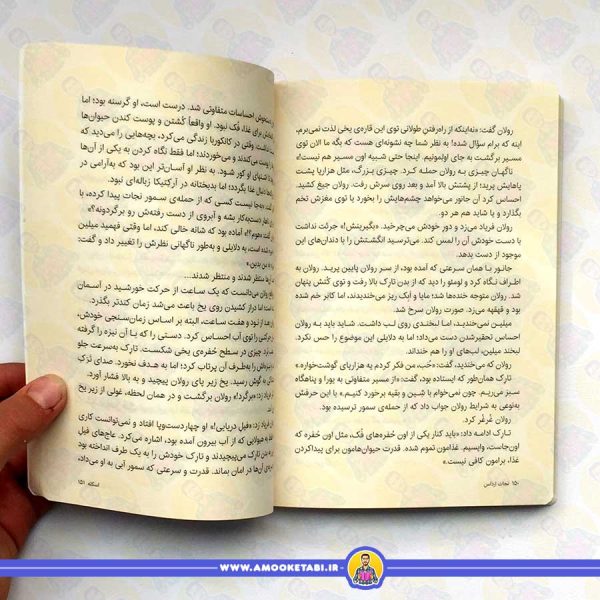 رولان گفت: «نه‌اینکه از راه‌رفتن طولانی توی این قاره‌ی یخی لذت نمی‌برم،
اینه که برام سؤال شده! به نظر شما چه نشونه‌ای هست که بگه ما الان توی
مسیر برگشت به جای اولمونیم. اینجا حتی شبیه اون مسیر هم نیست!»
ناگهان چیزی به رولان حمله کرد. چیزی بزرگ، مثل هزارپا پشت
پاهایش پرید؛ از پشتش بالا آمد و بعد روی سرش رفت. رولان جیغ کشید.
احساس کرد آن جانور می‌خواهد چشم‌هایش را بخورد یا توی مغزش تخم
بگذارد و یا شاید هم هر دو.
رولان فریاد می‌زد و دور خودش می‌چرخید. «بگیرینش!» جرئت نداشت
با دست خودش آن را لمس کند. می‌ترسید انگشتش را با دندان‌های این
موجود از دست بدهد.
جانور با همان سرعتی که آمده بود، از سر رولان پایین پرید. رولان به
اطراف نگاه کرد و لومتو را دید که از بدن تارک بالا رفت و توی کُتش پنهان
شد. رولان متوجه خنده‌ها شد؛ مایا و آبک ریز می‌خندیدند، اما کانر خم شده
بود و قهقهه می‌زد. صورت رولان سرخ شد.
میلین نمی‌خندید، اما لبخندی روی لب داشت. شاید باید به رولان
احساس تحقیرشدن دست می‌داد؛ اما به دلایلی این موضوع را حس نکرد.
لبخند میلین، لب‌های او را هم خنداند.
رولان که می‌خندید، گفت: «خُب، من فکر کردم یه هزارپای گوشت‌خواره.»
تارک همان‌طور که ایستاده بود، گفت: «از مسیر متفاوتی به پورا و پناهگاه
سبز می‌ریم. چون نمی‌خوام با شِین و بقیه برخورد کنیم.» با این حرفش
به‌نوعی به شرایط رولان جواب داد که از حمله‌ی سمور ترسیده بود.
رولان غُرغُر کرد.
تارک ادامه داد: «باید کنار یکی از اون حُفره‌های فُک، مثل اون حُفره که
اون‌جاست، وایسیم. غذامون تموم شده. قدرت حیوان‌هامون برای پیداکردن
غذا، برامون کافی نیست.»
۱۵۰ نجات ارداس
احساسات متفاوتی شد. درست است، او گرسنه بود؛ اما
برای غذا، فُک نبود. او واقعاً کُشتن و پوست کندن حیوان‌ها
وقتی در کانکوریا زندگی می‌کرد، بچه‌هایی را می‌دید که
پوست می‌کندند و می‌خوردند؛ اما فقط نگاه کردن به یکی از آن‌ها
اوغ کند. به نظر او آسان‌تر این بود که به‌آرامی در
دنبال غذا بگردد؛ اما بدبختانه در آرکتیکا زباله‌ای نبود.
نیست کسی که از حمله‌ی سمور نجات پیدا کرده، با
دست‌به‌کار بشه و آبروی از دست رفته‌ش رو برگردونه؟»
گفت: «هوم؟!» آماده بود که شانه خالی کند، اما وقتی فهمید میلین
شده است، به دلایلی و به‌طور ناگهانی نظرش را تغییر داد و گفت:
منتظر شدند و منتظر شدند...
رولان می‌دانست که یک ساعت از حرکت خورشید در آسمان
اما دراز کشیدن روی یخ باعث می‌شد زمان کندتر بگذرد.
از نود و هفت ساعت، البته بر اساس زمان‌سنجی خودش،
ترکی را توی آب احساس کرد. دستی را که با آن نیزه را گرفته
چیزی در سطح حُفره‌ی یخی شکست. تارک به‌سرعت جلو
را به‌طرف آن پرتاب کرد؛ اما به هدف نخورد. صدای تَرَک
به گوش رسید. یخ زیر پای رولان پیچید و به بالا فشار آورد.
زد: «برگرد!» رولان برگشت و در همان لحظه، غولی از زیر یخ
زد: «فیل دریایی!» او چهاردست‌وپا افتاد و نمی‌توانست کاری
هیولایی که از آب بیرون آمده بود، اشاره می‌کرد. عاج‌های فیل
تارک می‌پیچیدند و تارک خودش را به یک طرف انداخته بود
آن‌ها در امان بماند. قدرت و سرعتی که سمور آبی به او می‌داد،
اسکلته ۱۵۱
WWW.AMOOKETABI.IR